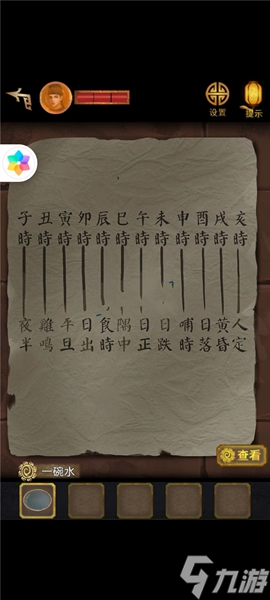 设置 提示
子 丑 寅 卯 辰 巳 午 未 申 酉 戌 亥
時 時 時 時 時 時 時 時 時 時 時 時
夜 雞 平 日 食 隅 日 日 哺 日 黄 人
半 鳴 旦 出 時 中 正 跌 時 落 昏 定
查看
一碗水
九游